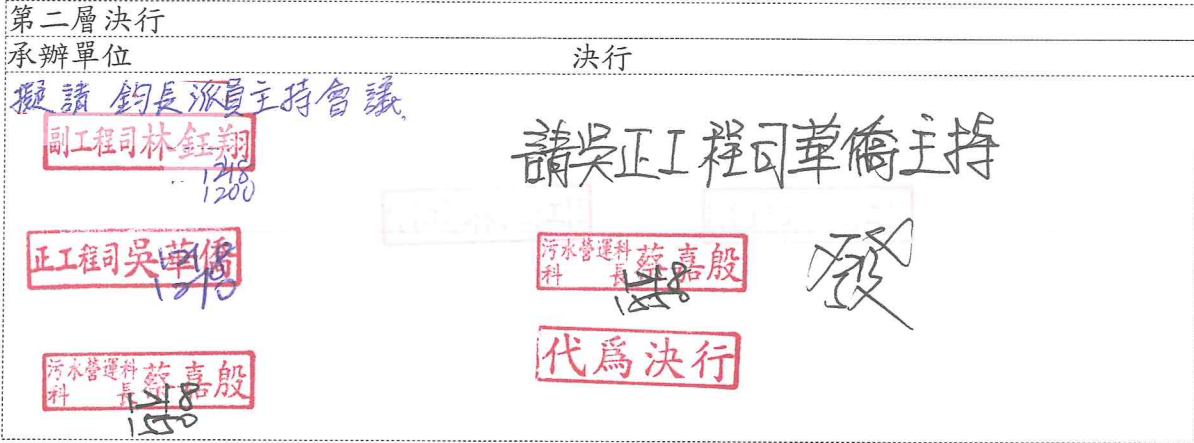 第二層決行
承辦單位
決行
擬請 鈞長派員主持會議.
副工程司林鈺翔
1218
1200
正工程司吳華僑
1218
1210
污水營運科
科 長 蔡嘉殷
1218
1550
請吳正工程司華僑主持
污水營運科
科 長 蔡嘉殷
1218
1558
發
代爲決行